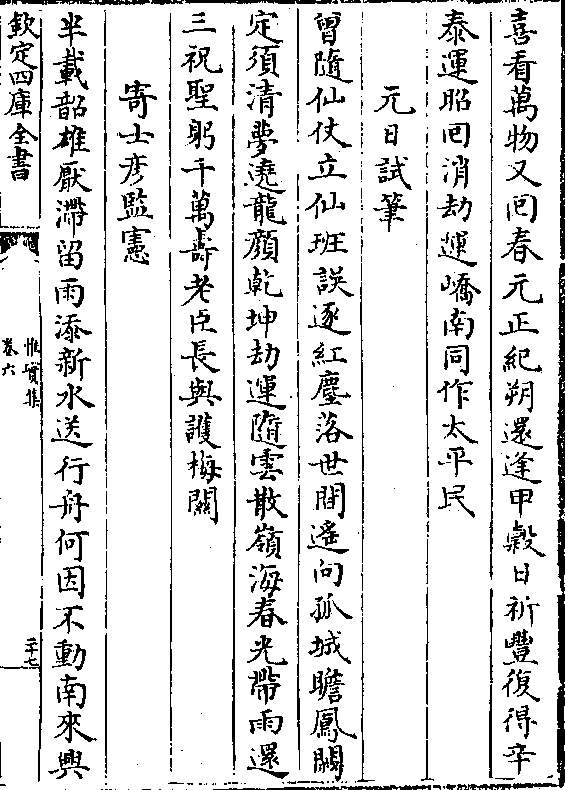 喜看萬物又囘春元正紀朔還逢甲榖日祈豐復得辛
泰運昭囘消劫運嶠南同作太平民
元日試筆
曾隨仙仗立仙班誤逐紅塵落世間遙向孤城瞻鳳闕
定須清夢遶龍顔乾坤劫運隨雲散嶺海春光帶雨還
三祝聖躬千萬壽老臣長與護梅關
寄士彦監憲
半載韶雄厭滯留雨添新水送行舟何因不動南來興
欽定四庫全書
惟實集
卷六
二十七